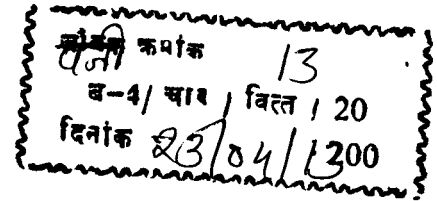 पंजी क्रमांक 13
ब-4/ चार / वित्त / 20
दिनांक 23/04/13 200